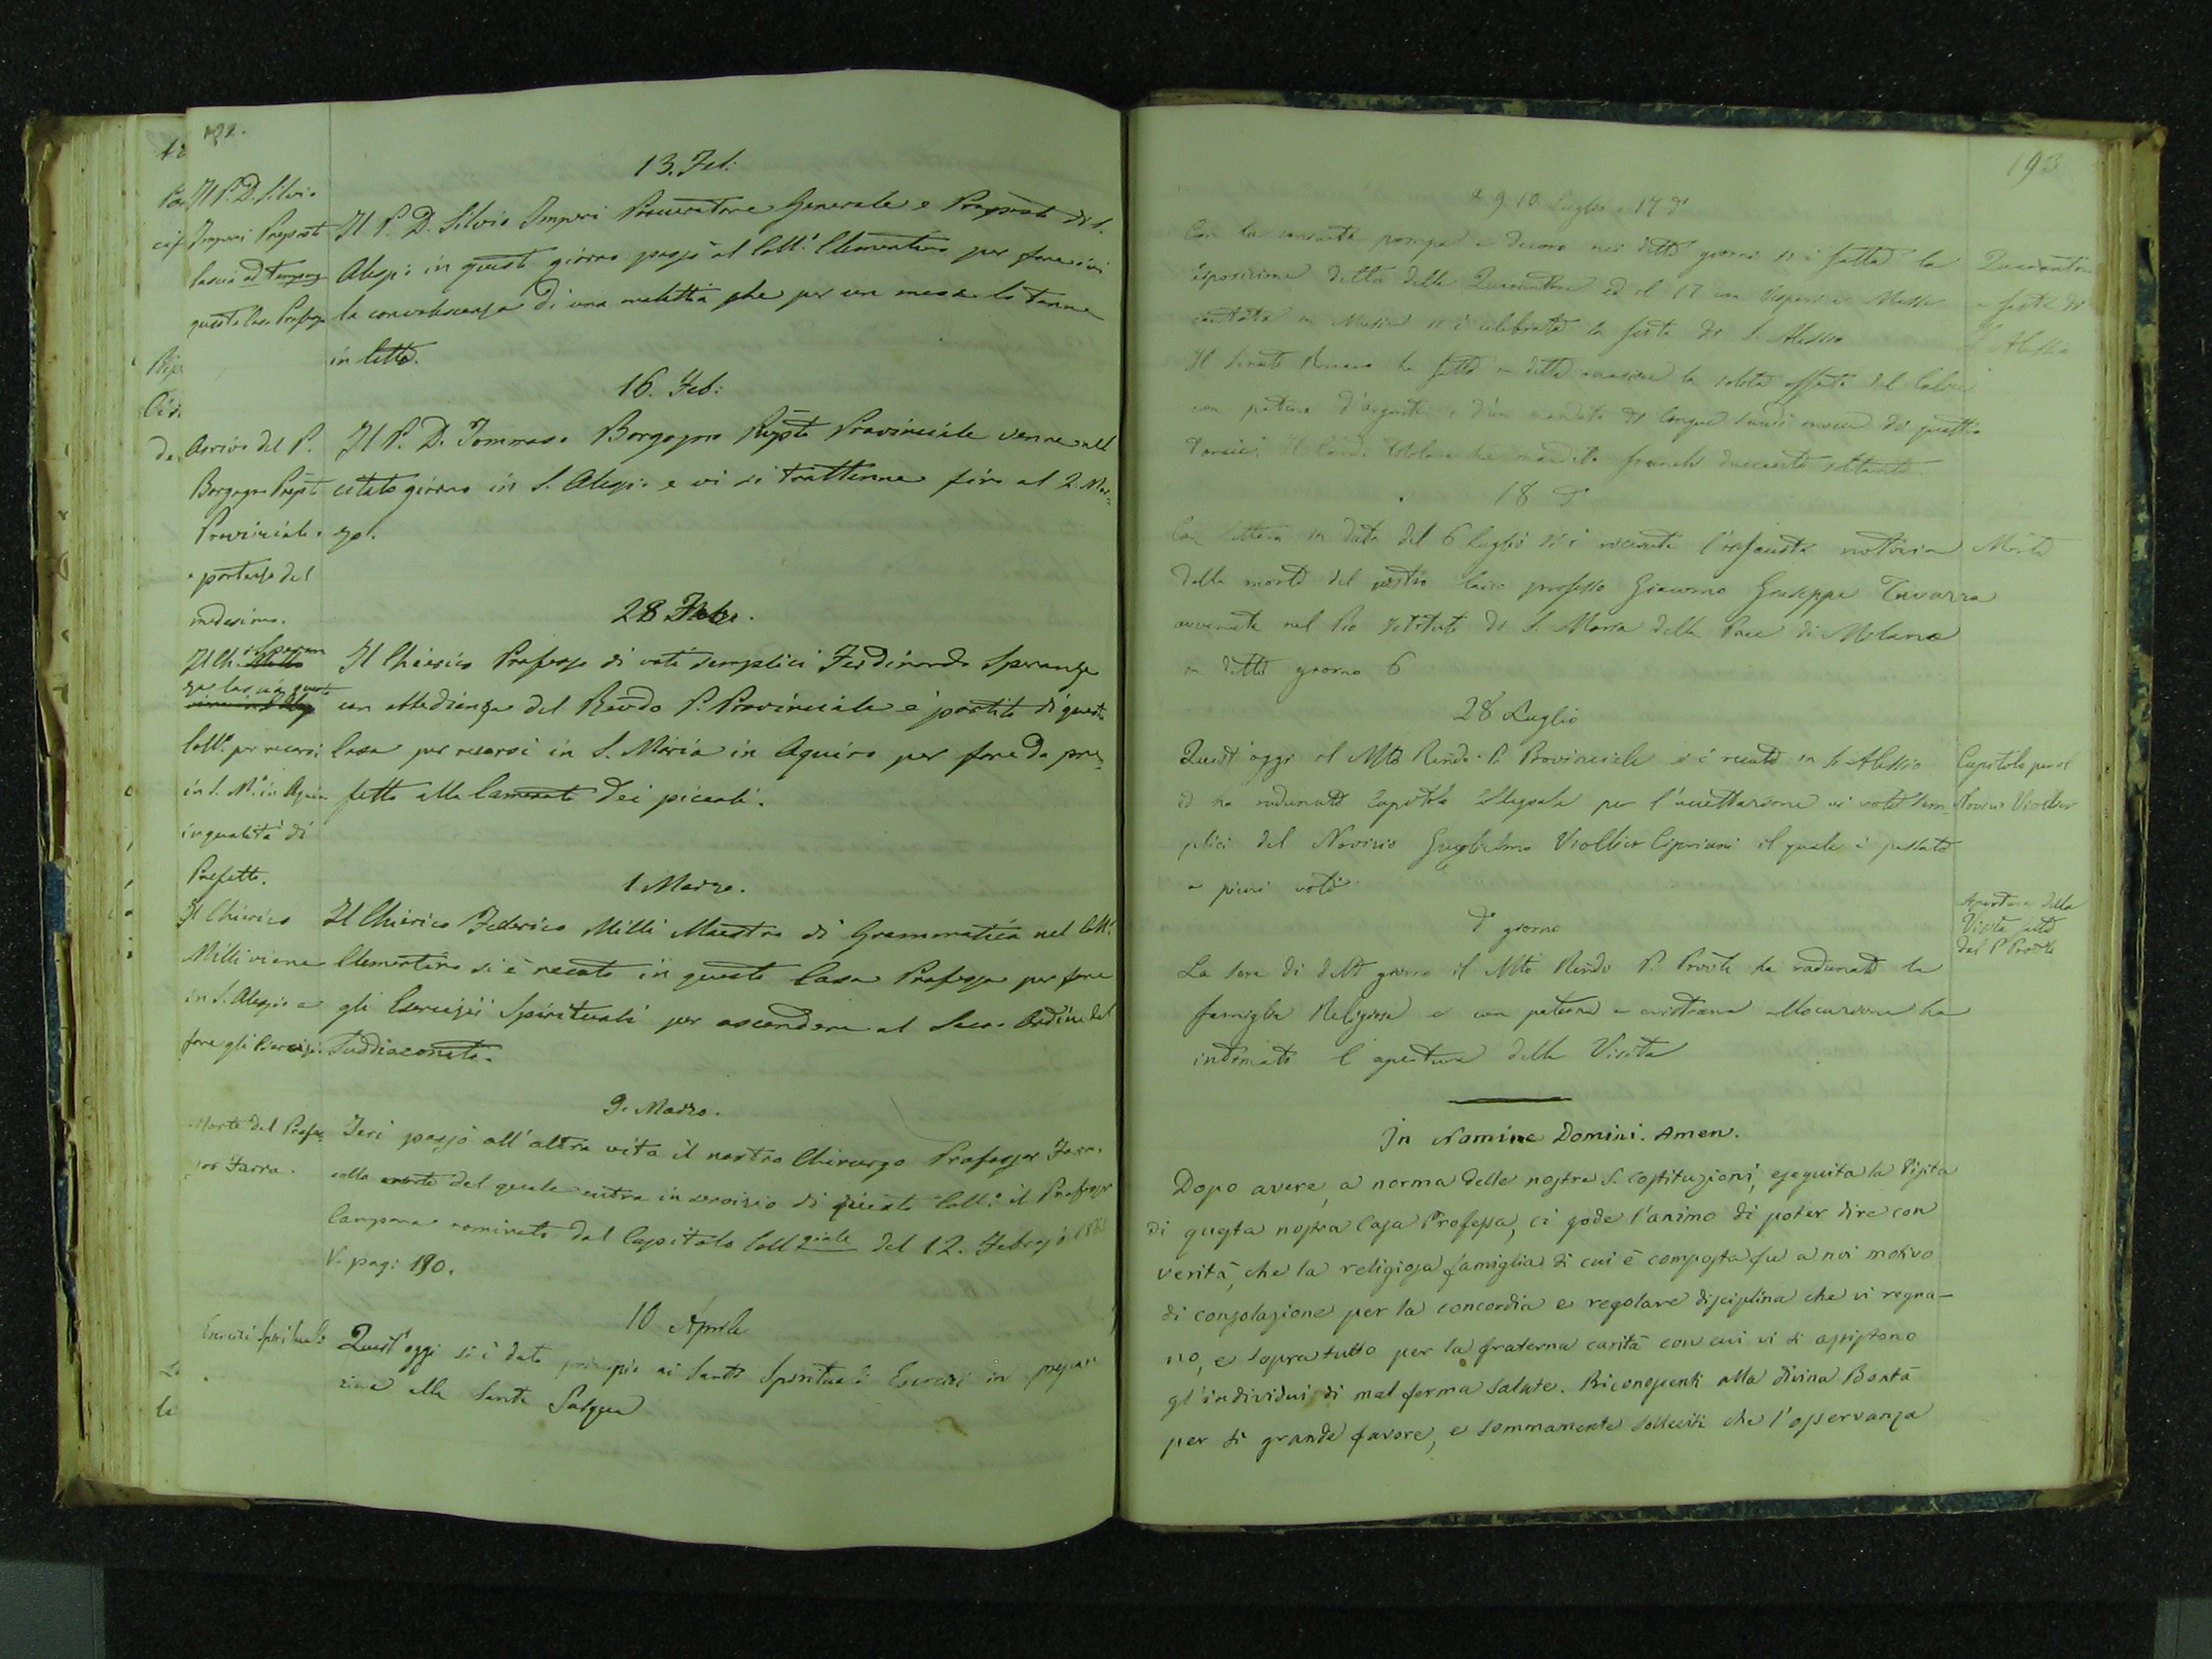 192.
13. Feb:
Il P. D. Silvio
Imperi Preposto
lascia ad tempus
questa Casa Professa
Il P. D. Silvio Imperi Procuratore Generale e Preposto di S.
Alessio in questo giorno passò al Coll.º Clementino per fare ivi
la convalescenza di una malattia che per un mese lo tenne
in letto.
16. Feb:
Arrivo del P.
Borgogno Prepsto
Provinciale.
e partenza del
medesimo.
Il P. D. Tommaso Borgogno Prepsto Provinciale venne nel
citato giorno in S. Alessio e vi si trattenne fino al 2. Mar-
zo.
28 Feb.
Il Ch. Speran
za lascia questo
Coll.º per recarsi
in S. M.ª in Aquiro
in qualità di
Prefetto.
Il Chierico Professo di voti semplici Ferdinando Speranza
con obbedienza del Revdo P. Provinciale è partito di questa
Casa per recarsi in S. Maria in Aquiro per fare da pre-
fetto alla Camerata dei piccoli.
1 Marzo.
Il Chierico
Milli viene
in S. Alessio a
fare gli Esercizi
Il Chierico Federico Milli Maestro di Grammatica nel Coll.º
Clementino si è recato in questa Casa Professa per fare
gli Esercizii Spirituali per ascendere al Sacro Ordine del
Suddiaconato.
9. Marzo.
Morte del Profes
sor Farra.
Ieri passò all'altra vita il nostro Chirurgo Professor Farra
colla morte del quale entra in servizio di questo Coll.º il Professor
Campana nominato dal Capitolo Collegiale del 12. Febrajo
V. pag: 190.
10 Aprile
Esercizi Spirituali
Quest'oggi si è dato principio ai Santi Spirituali Esercizi in prepara
zione alla Santa Pasqua
193
8 9 10 Luglio e 17 do
Con la consueta pompa e decoro nei detti giorni si è fatta la
esposizione detta delle Quarantore ed il 17 con Vespri e Messa
cantata in Musica si è celebrata la festa di S. Alessio
Il Senato Romano ha fatto in detta occasione la solita offerta del Calice
con patena d'argento e d'un mandato di cinque scudi invece di quattro
Torcie. Il Card. ha mandato franchi duecento settanta.
Quarantore
e festa di
S. Alessio
18 do
Con lettera in data del 6 Luglio si è ricevuta l'infausta notizia
della morte del nostro laico professo Giacomo Giuseppe Tavarra
avvenuta nel Pio Istituto di S. Maria della Pace di Milano
in detto giorno 6
Morte
28 Luglio
Quest'oggi il Mto Rendo P. Provinciale si è recato in S. Alessio
ed ha radunato Capitolo Collegiale per l'accettazione ai voti sem-
plici del Novizio Guglielmo Viollier Cipriani il quale è passato
a pieni voti.
Capitolo per il
Novizio Viollier
do giorno
La sera di detto giorno il Mto Rendo P. Provle ha radunato la
famiglia Religiosa e con paterna e cristiana allocuzione ha
intimato l'apertura della Visita
Apertura della
Visita fatta
dal P. Provle
In Nomine Domini. Amen.
Dopo avere, a norma delle nostre S. Costituzioni, eseguita la Visita
di questa nostra Casa Professa, ci gode l'animo di poter dire con
verità, che la religiosa famiglia di cui è composta fu a noi motivo
di consolazione per la concordia e regolare disciplina che vi regna-
no, e sopratutto per la fraterna carità con cui vi si assistono
gl'individui di mal ferma salute. Riconoscenti alla divina Bontà
per sì grande favore, e sommamente solleciti che l'osservanza